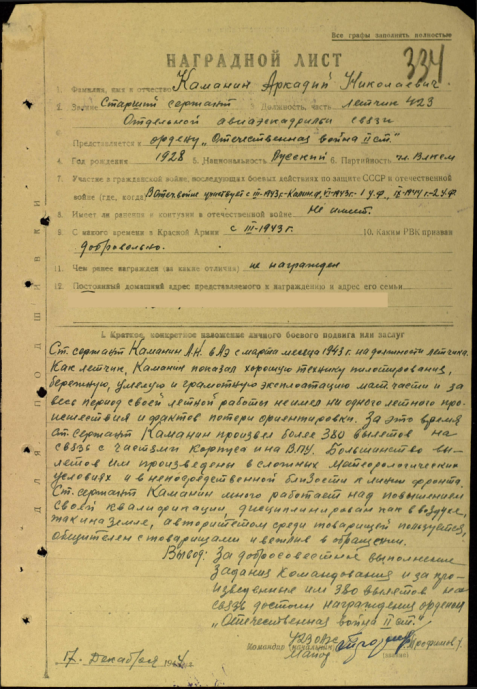 Все графы заполнять полностью
334
НАГРАДНОЙ ЛИСТ
1. Фамилия, имя и отчество Каманин Аркадий Николаевич.
2. Звание Старший сержант 3. Должность, часть летчик 423
Отдельной авиаэскадрильи связи
Представляется к ордену „Отечественная война II ст."
4. Год рождения 1928 5. Национальность Русский 6. Партийность чл. Влксм
7. Участие в гражданской войне, последующих боевых действиях по защите СССР и отечественной
войне (где, когда) В Отеч. войне участвует с
8. Имеет ли ранения и контузии в отечественной войне Не имеет.
9. С какого времени в Красной Армии с III-1943 г. 10. Каким РВК призван
добровольно.
11. Чем ранее награжден (за какие отличия) не награжден
12. Постоянный домашний адрес представляемого к награждению и адрес его семьи
I. Краткое, конкретное изложение личного боевого подвига или заслуг
Ст. сержант Каманин А.Н. в АЭ с марта месяца 1943 г. на должности летчика.
Как летчик, Каманин показал хорошую технику пилотирования,
бережную, умелую и грамотную эксплоатацию матчасти и за
весь период своей летной работы не имел ни одного летного про-
исшествия и фактов потери ориентировки. За это время
ст. сержант Каманин произвел более 380 вылетов на
связь с частями корпуса и на ВПУ. Большинство вы-
летов им произведены в сложных метеорологических
условиях и в непосредственной близости к линии фронта.
Ст. сержант Каманин много работает над повышением
своей квалификации, дисциплинирован как в воздухе,
так и на земле, авторитетом среди товарищей пользуется,
общителен с товарищами и вежлив в обращении.
Вывод: За добросовестное выполнение
задания командования и за про-
изведенные им 380 вылетов на
связь достоин награждения орденом
„Отечественная война II ст."
Командир (начальник) 423 ОАЭС
Майор
(Трофимов)
17. Декабря 1944 г.
ДЛЯ ПОДШИВКИ